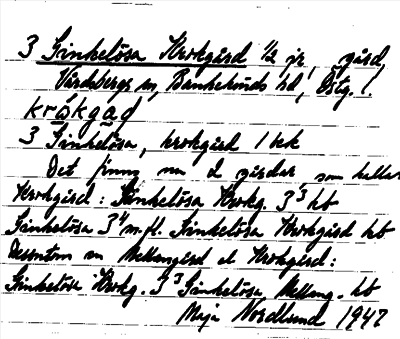 3 Ginkelösa Krokgård 1/2 jr, gård,
Vårdsbergs sn, Bankekinds hd, Östg. l.
kråkgaḍ
3 Ginkelösa, krokgård 1 bk
Det finns nu 2 gårdar som heller
Krokgård: Ginkelösa Krokg. 3³ hb
Ginkelösa 3⁴ m.fl. Ginkelösa Krokgård hb
Dessutom en Mellangård el Krokgård:
Ginkelösa Krokg. 3³ Ginkelösa Mellang. hb
Maja Nordlund 1947